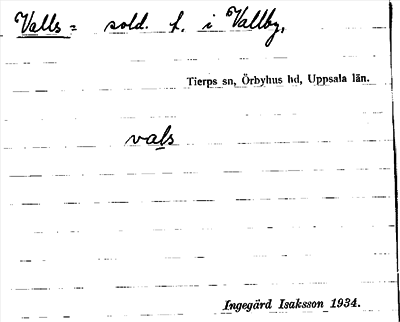 Valls = sold. t. i Vallby,
Tierps sn, Örbyhus hd, Uppsala län.
vals
Ingegärd Isaksson 1934.